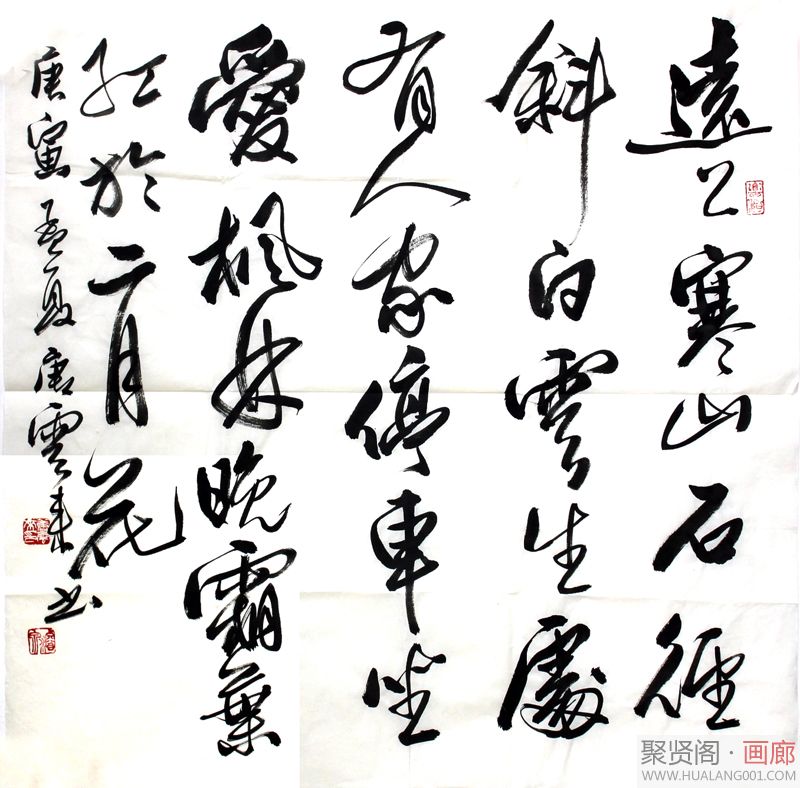 遠上寒山石徑
斜白雲生處
有人家停車坐
愛楓林晚霜葉
紅於二月花
庚寅孟夏唐雲來書
聚贤阁·画廊
WWW.HUALANG001.COM